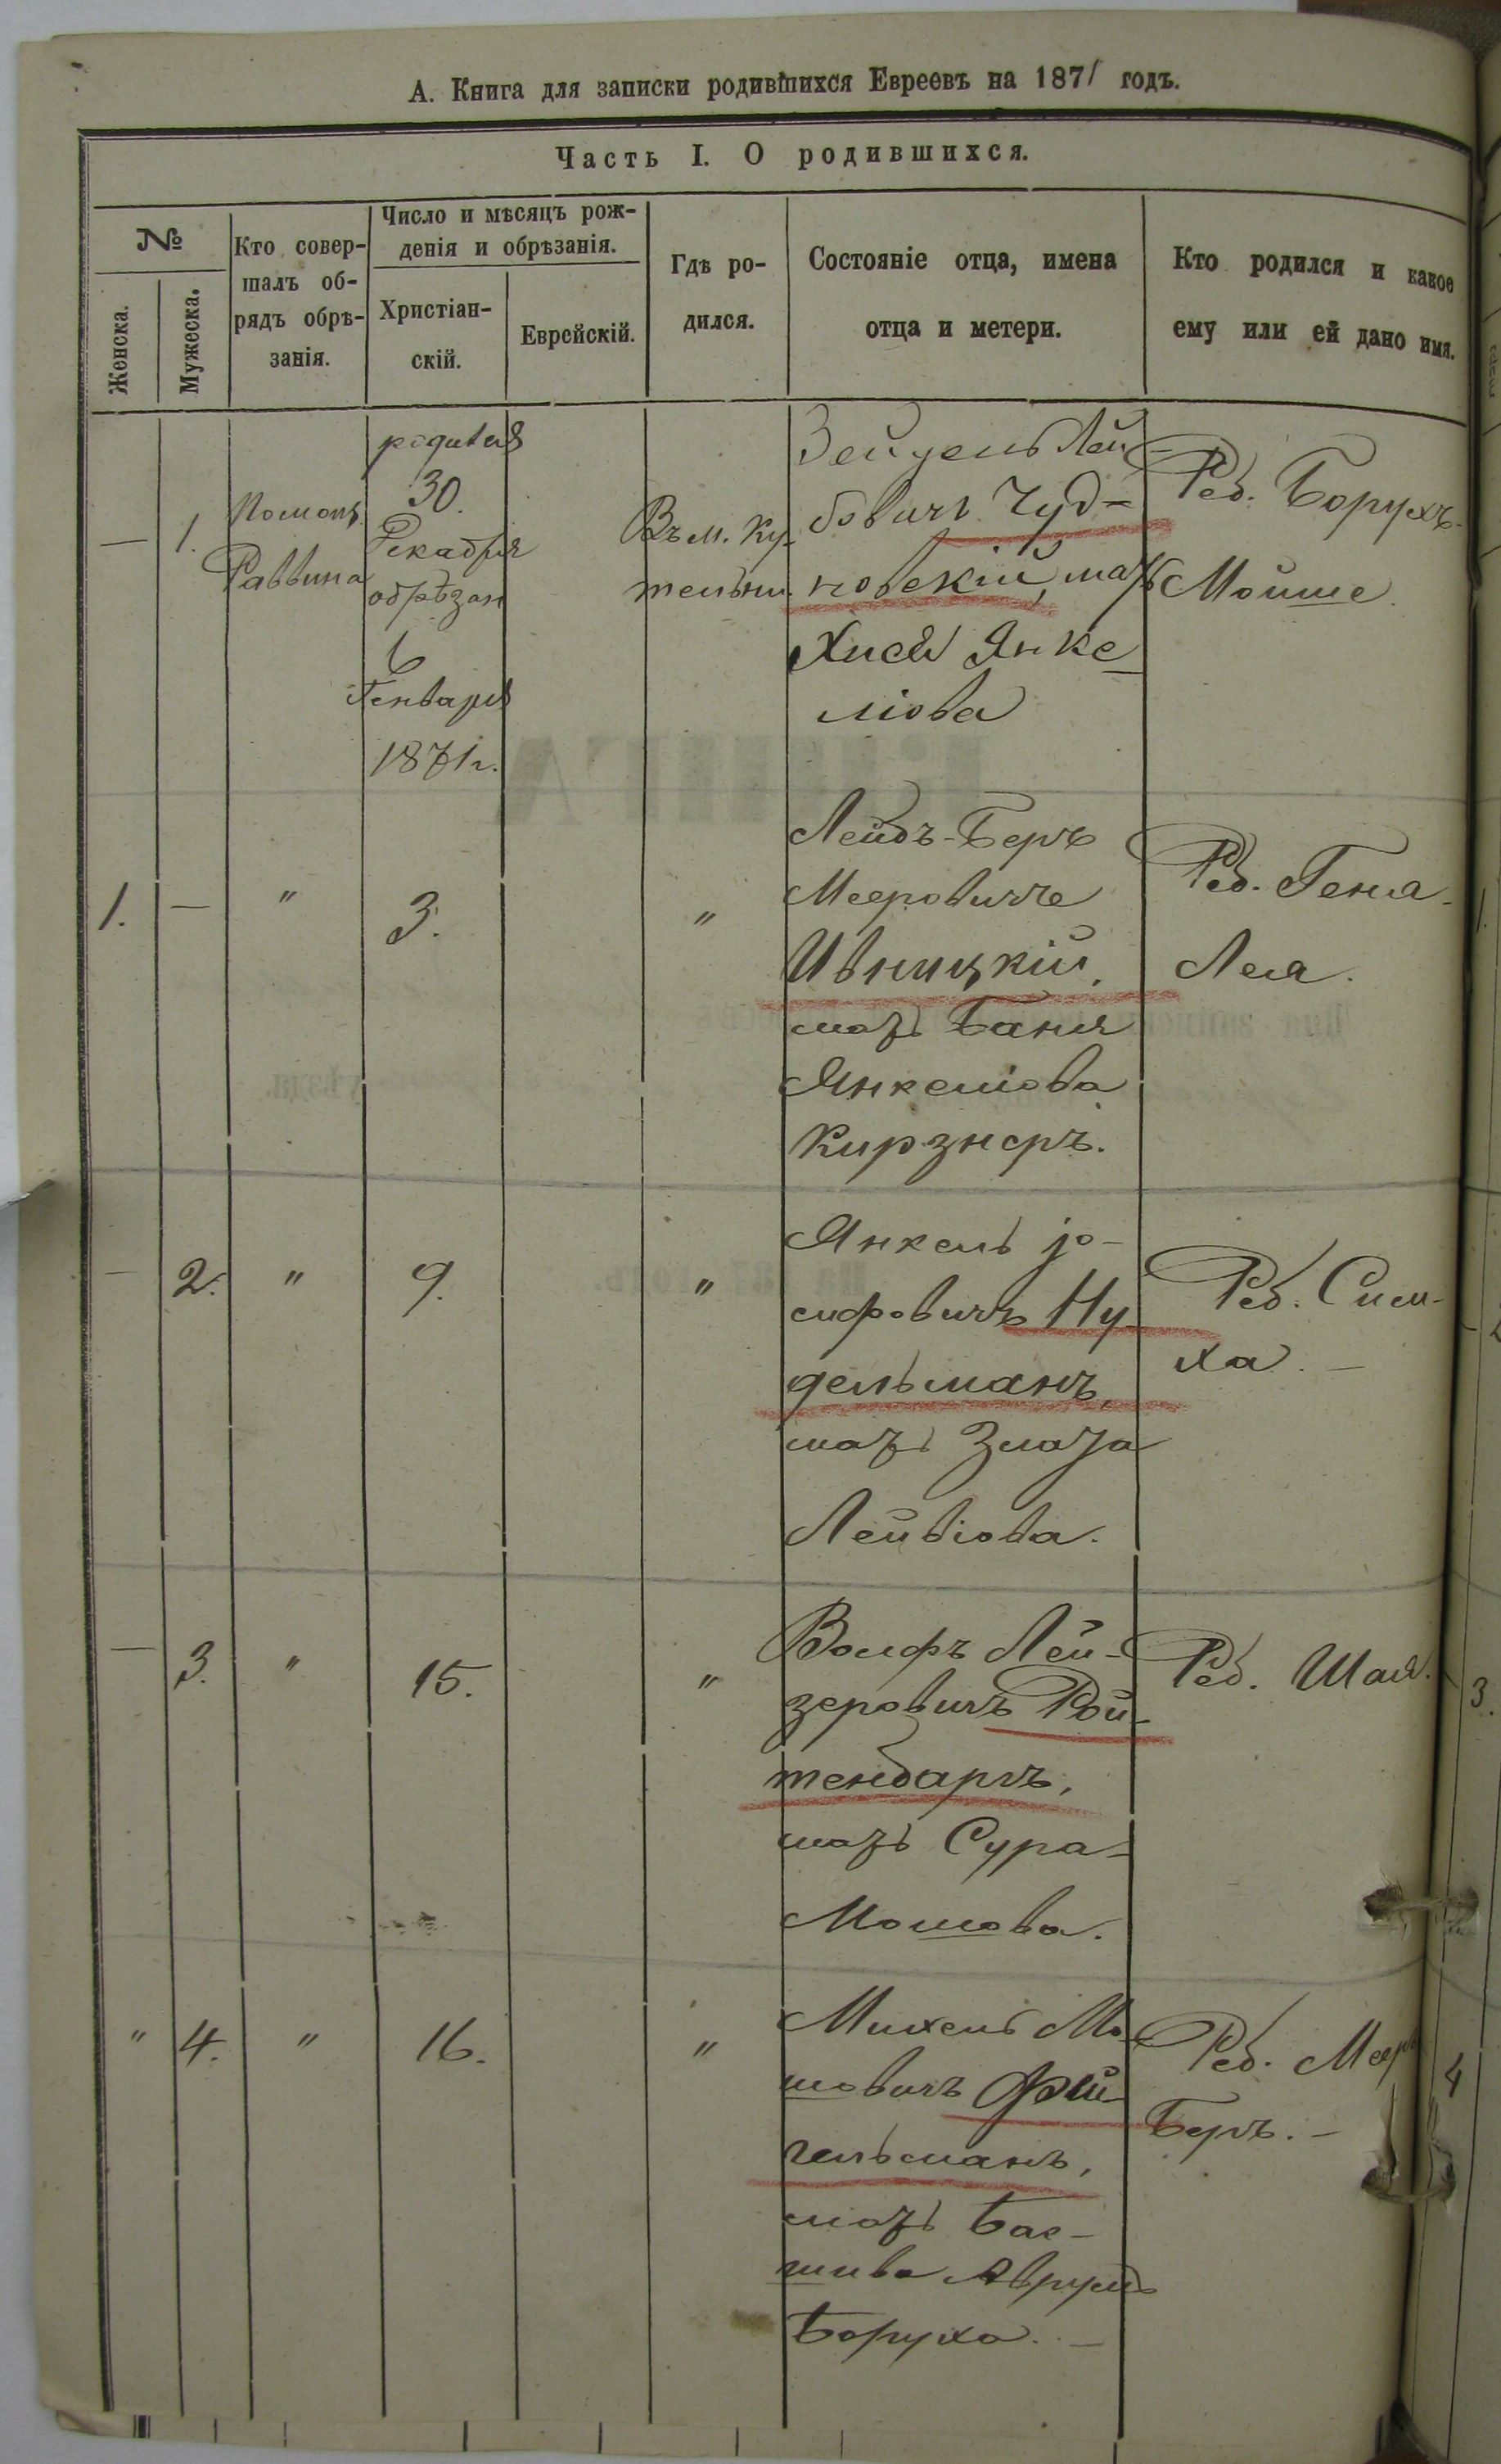 А. Книга для записки родившихся Евреевъ на 1871 годъ.
Часть I. О родившихся.
№
Женска.
Мужеска.
Кто совер-
шалъ об-
рядъ обрѣ-
занія.
Число и мѣсяцъ рож-
денія и обрѣзанія.
Христіан-
скій.
Еврейскій.
Гдѣ ро-
дился.
Состояніе отца, имена
отца и метери.
Кто родился и какое
ему или ей дано имя.
— 1.
Помощ.
Раввина
родился
30.
Декабря
обрѣзан
6
Генваря
1871 г.
Въ м. Ку-
тельни.
Зейдель Лей-
бовичъ Чуд-
новскій, мать
Хися Янке-
ліова
Реб. Борухъ-
Мойше.
1. — " 3. "
Лейбъ-Беръ
Мееровичъ
Ивницкій,
мать Баня
Янкеліова
Кирзнеръ.
Реб. Геня-
Лея.
— 2. " 9. "
Янкель Іо-
сифовичъ Ну-
дельманъ,
мать Злата
Лейвіова.
Реб. Сим-
ха. —
— 3. " 15. "
Волфъ Лей-
зеровичъ Рой-
тенбаргъ,
мать Сура-
Мошова.
Реб. Шая.
" 4. " 16. "
Михель Мо-
шовичъ Фей-
гельманъ,
мать Бас-
шива Аврумъ
Боруха. —
Реб. Мееръ
Беръ. —
3.
4